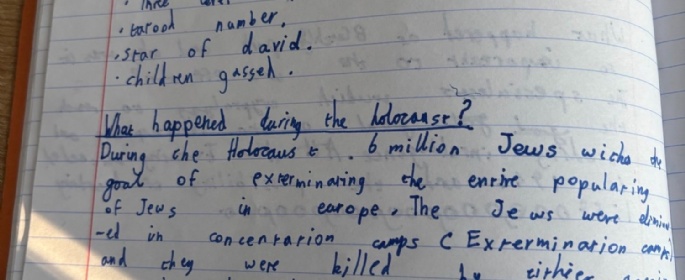 · three
· tatood number.
· star of david.
· children gassed.
What happened during the holocaust?
During the Holocaust. 6 million Jews with the
goal of exterminating the entire populating
of Jews in europe. The Jews were elimin
-ed in concentration camps (Extermination camps)
and they were killed by either